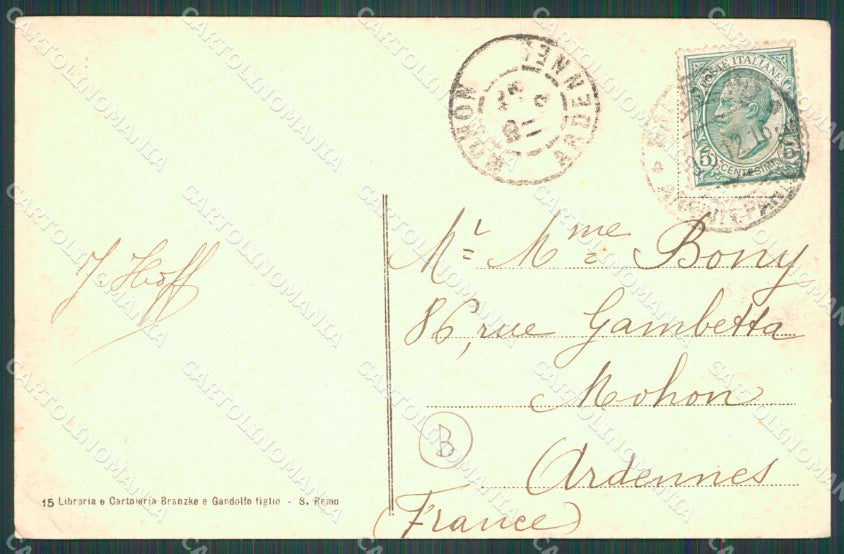 MOHON ARDENNES
POSTE ITALIANE
5 CENTESIMI 5
J Hoff
Mr = Mme = Bony
86, rue Gambetta
Mohon
B
Ardennes
(France)
15 Libreria e Cartoleria Branzke e Gandolfo figlio - S. Remo
CARTOLINOMANIA